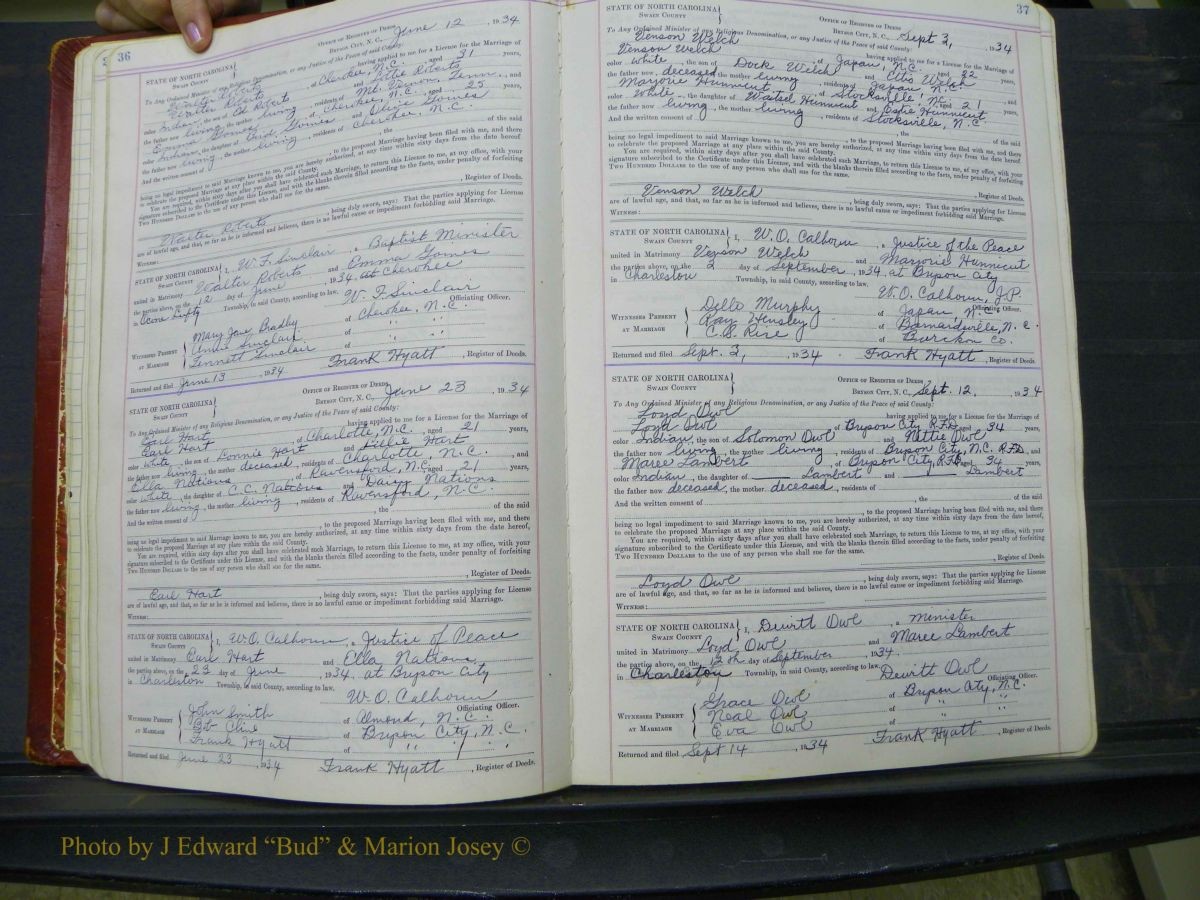 36
STATE OF NORTH CAROLINA
SWAIN COUNTY
OFFICE OF REGISTER OF DEEDS
BRYSON CITY, N. C., June 12, 1934
To Any Ordained Minister of any Religious Denomination, or any Justice of the Peace of said County:
Walter Roberts
having applied to me for a License for the Marriage of
Walter Roberts, of Cherokee, N.C. aged 31 years,
color Indian, the son of Ed Roberts and Ettie Roberts
the father now living, the mother living, residents of Mt. Vernon, Tenn., and
Emma Gomes of Cherokee, N.C. aged 25 years,
color Indian, the daughter of and Olivia Gomes
the father now living, the mother living, residents of Cherokee, N.C.
And the written consent of , the of the said
, to the proposed Marriage having been filed with me, and there
being no legal impediment to said Marriage known to me, you are hereby authorized, at any time within sixty days from the date hereof,
to celebrate the proposed Marriage at any place within the said County.
You are required, within sixty days after you shall have celebrated such Marriage, to return this License to me, at my office, with your
signature subscribed to the Certificate under this License, and with the blanks therein filled according to the facts, under penalty of forfeiting
TWO HUNDRED DOLLARS to the use of any person who shall sue for the same.
, Register of Deeds.
Walter Roberts, being duly sworn, says: That the parties applying for License
are of lawful age, and that, so far as he is informed and believes, there is no lawful cause or impediment forbidding said Marriage.
WITNESS:
STATE OF NORTH CAROLINA
SWAIN COUNTY
I, W. F. Sinclair, a Baptist Minister
united in Matrimony Walter Roberts and Emma Gomes
the parties above, on the 12 day of June, 1934, at Cherokee
in Ocona Lufty Township, in said County, according to law.
W. F. Sinclair
Officiating Officer.
WITNESSES PRESENT AT MARRIAGE
Mary Jane Bradley of Cherokee, N.C.
Annie Sinclair of " "
Sinclair of " "
Returned and filed June 13, 1934 Frank Hyatt, Register of Deeds.
STATE OF NORTH CAROLINA
SWAIN COUNTY
OFFICE OF REGISTER OF DEEDS
BRYSON CITY, N. C., June 23, 1934
To Any Ordained Minister of any Religious Denomination, or any Justice of the Peace of said County:
Earl Hart
having applied to me for a License for the Marriage of
Earl Hart, of Charlotte, N.C. aged 21 years,
color White, the son of Lonnie Hart and Lillie Hart
the father now living, the mother deceased, residents of Charlotte, N.C. and
Ella Nations of Ravensford, N.C. aged 21 years,
color White, the daughter of C.C. Nations and Daisy Nations
the father now living, the mother living, residents of Ravensford, N.C.
And the written consent of , the of the said
, to the proposed Marriage having been filed with me, and there
being no legal impediment to said Marriage known to me, you are hereby authorized, at any time within sixty days from the date hereof,
to celebrate the proposed Marriage at any place within the said County.
You are required, within sixty days after you shall have celebrated such Marriage, to return this License to me, at my office, with your
signature subscribed to the Certificate under this License, and with the blanks therein filled according to the facts, under penalty of forfeiting
TWO HUNDRED DOLLARS to the use of any person who shall sue for the same.
, Register of Deeds.
Earl Hart, being duly sworn, says: That the parties applying for License
are of lawful age, and that, so far as he is informed and believes, there is no lawful cause or impediment forbidding said Marriage.
WITNESS:
STATE OF NORTH CAROLINA
SWAIN COUNTY
I, W.O. Calhoun, a Justice of Peace
united in Matrimony Earl Hart and Ella Nations
the parties above, on the 23 day of June, 1934, at Bryson City
in Charleston Township, in said County, according to law.
W. O. Calhoun
Officiating Officer.
WITNESSES PRESENT AT MARRIAGE
John Smith of Almond, N.C.
Bob Cline of Bryson City, N.C.
Frank Hyatt of " " "
Returned and filed June 23, 1934 Frank Hyatt, Register of Deeds.
37
STATE OF NORTH CAROLINA
SWAIN COUNTY
OFFICE OF REGISTER OF DEEDS
BRYSON CITY, N. C., Sept 2, 1934
To Any Ordained Minister of any Religious Denomination, or any Justice of the Peace of said County:
Venson Welch
having applied to me for a License for the Marriage of
Venson Welch of Japan, N.C. aged 22 years,
color white, the son of Dock Welch and Welch
the father now deceased the mother living residents of Japan, N.C.
Marjorie Hunnicut of Stocksville, N.C. aged 21, and
color White, the daughter of Waitsel Hunnicut and Hunnicut
the father now living, the mother living, residents of Stocksville, N.C.
And the written consent of , the of the said
, to the proposed Marriage having been filed with me, and there
being no legal impediment to said Marriage known to me, you are hereby authorized, at any time within sixty days from the date hereof,
to celebrate the proposed Marriage at any place within the said County.
You are required, within sixty days after you shall have celebrated such Marriage, to return this License to me, at my office, with your
signature subscribed to the Certificate under this License, and with the blanks therein filled according to the facts, under penalty of forfeiting
TWO HUNDRED DOLLARS to the use of any person who shall sue for the same.
, Register of Deeds.
Venson Welch, being duly sworn, says: That the parties applying for License
are of lawful age, and that, so far as he is informed and believes, there is no lawful cause or impediment forbidding said Marriage.
WITNESS:
STATE OF NORTH CAROLINA
SWAIN COUNTY
I, W.O. Calhoun, a Justice of the Peace
united in Matrimony Venson Welch and Marjorie Hunnicut
the parties above, on the 2 day of September, 1934, at Bryson City
in Charleston Township, in said County, according to law.
W.O. Calhoun, J.P.
Officiating Officer.
WITNESSES PRESENT AT MARRIAGE
Della Murphy of Japan, N.C.
Ray Hensley of Barnardsville, N.C.
C.S. Rise of Co.
Returned and filed Sept. 2, 1934 Frank Hyatt, Register of Deeds.
STATE OF NORTH CAROLINA
SWAIN COUNTY
OFFICE OF REGISTER OF DEEDS
BRYSON CITY, N. C., Sept. 12, 1934
To Any Ordained Minister of any Religious Denomination, or any Justice of the Peace of said County:
Loyd Owl
having applied to me for a License for the Marriage of
Loyd Owl of Bryson City R.F.D. aged 34 years,
color Indian, the son of Solomon Owl and Nettie Owl
the father now living, the mother living, residents of Bryson City, N.C. R.F.D., and
Maree Lambert of Bryson City, R.F.D. aged 34 years,
color Indian, the daughter of Lambert and Lambert
the father now deceased, the mother deceased, residents of
And the written consent of , the of the said
, to the proposed Marriage having been filed with me, and there
being no legal impediment to said Marriage known to me, you are hereby authorized, at any time within sixty days from the date hereof,
to celebrate the proposed Marriage at any place within the said County.
You are required, within sixty days after you shall have celebrated such Marriage, to return this License to me, at my office, with your
signature subscribed to the Certificate under this License, and with the blanks therein filled according to the facts, under penalty of forfeiting
TWO HUNDRED DOLLARS to the use of any person who shall sue for the same.
, Register of Deeds.
Loyd Owl, being duly sworn, says: That the parties applying for License
are of lawful age, and that, so far as he is informed and believes, there is no lawful cause or impediment forbidding said Marriage.
WITNESS:
STATE OF NORTH CAROLINA
SWAIN COUNTY
I, Dewitt Owl, a Minister
united in Matrimony Loyd Owl and Maree Lambert
the parties above, on the 12th day of September, 1934.
in Charleston Township, in said County, according to law.
Dewitt Owl
Officiating Officer.
WITNESSES PRESENT AT MARRIAGE
Grace Owl of Bryson City, N.C.
Neal Owl of " "
Eva Owl of " "
Returned and filed Sept 14, 1934 Frank Hyatt, Register of Deeds.
Photo by J Edward “Bud” & Marion Josey ©